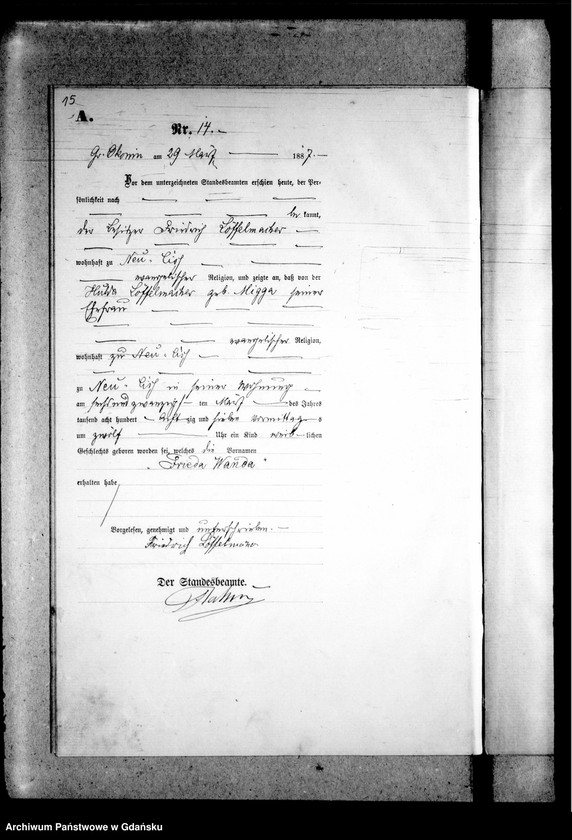 15
A.
Nr. 14.
Gr. Okonin am 29 März 1887.
Vor dem unterzeichneten Standesbeamten erschien heute, der Per-
sönlichkeit nach
be kannt,
der Besitzer Friedrich Löffelmacher
wohnhaft zu Neu-
evangelischer Religion, und zeigte an, daß von der
Hulda Löffelmacher geb. Migga seiner
Ehefrau
evangelischer Religion,
wohnhaft zu Neu-
zu Neu- in seiner Wohnung
am sechsundzwanzigsten März des Jahres
tausend acht hundert achtzig und sieben Vormittags
um zwölf Uhr ein Kind weiblichen
Geschlechts geboren worden sei, welches die Vornamen
"Frieda Wanda"
erhalten habe
Vorgelesen, genehmigt und unterschrieben.
Friedrich
Der Standesbeamte.
Archiwum Państwowe w Gdańsku